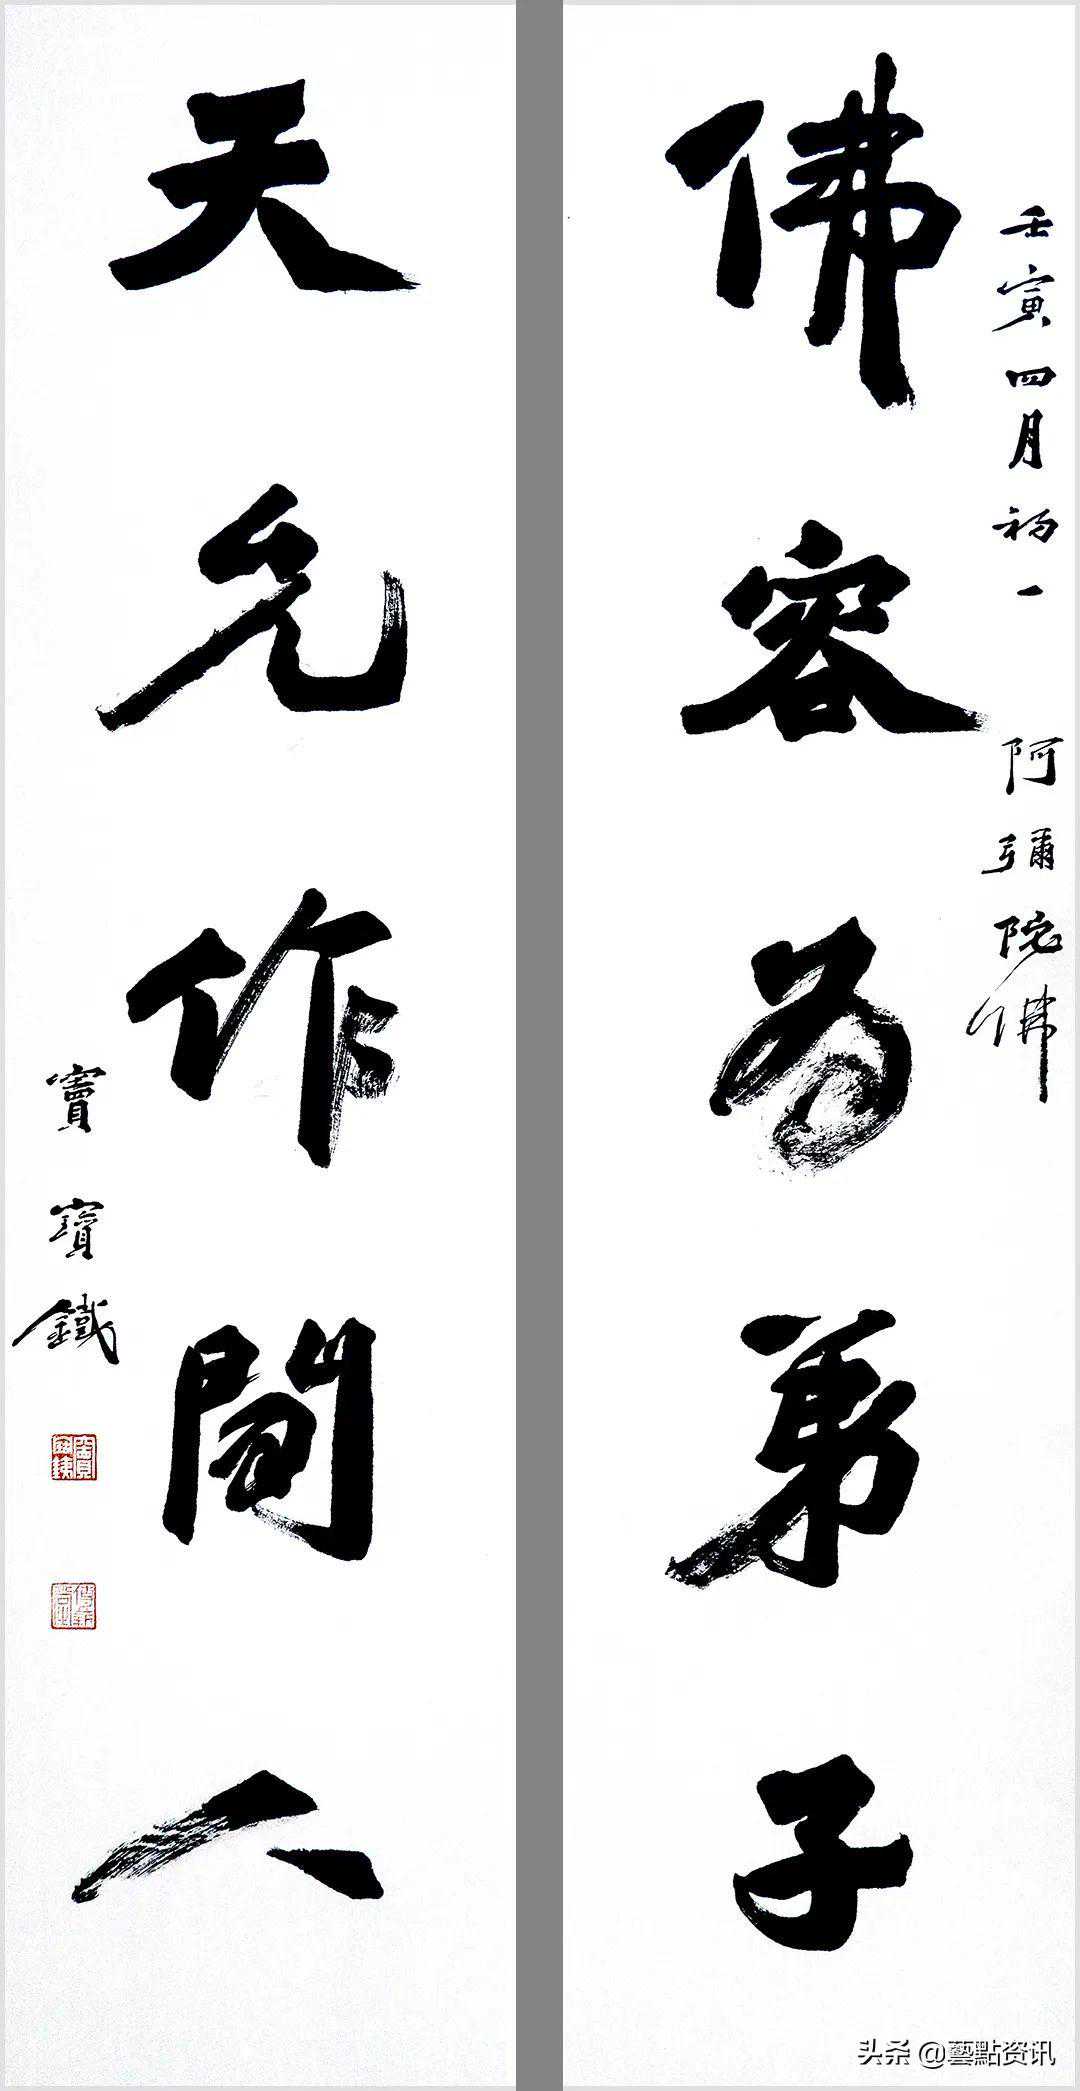 壬寅四月初一 阿彌陀佛
佛容為弟子
天允作閒人
竇寶鐵
头条 @藝點资讯